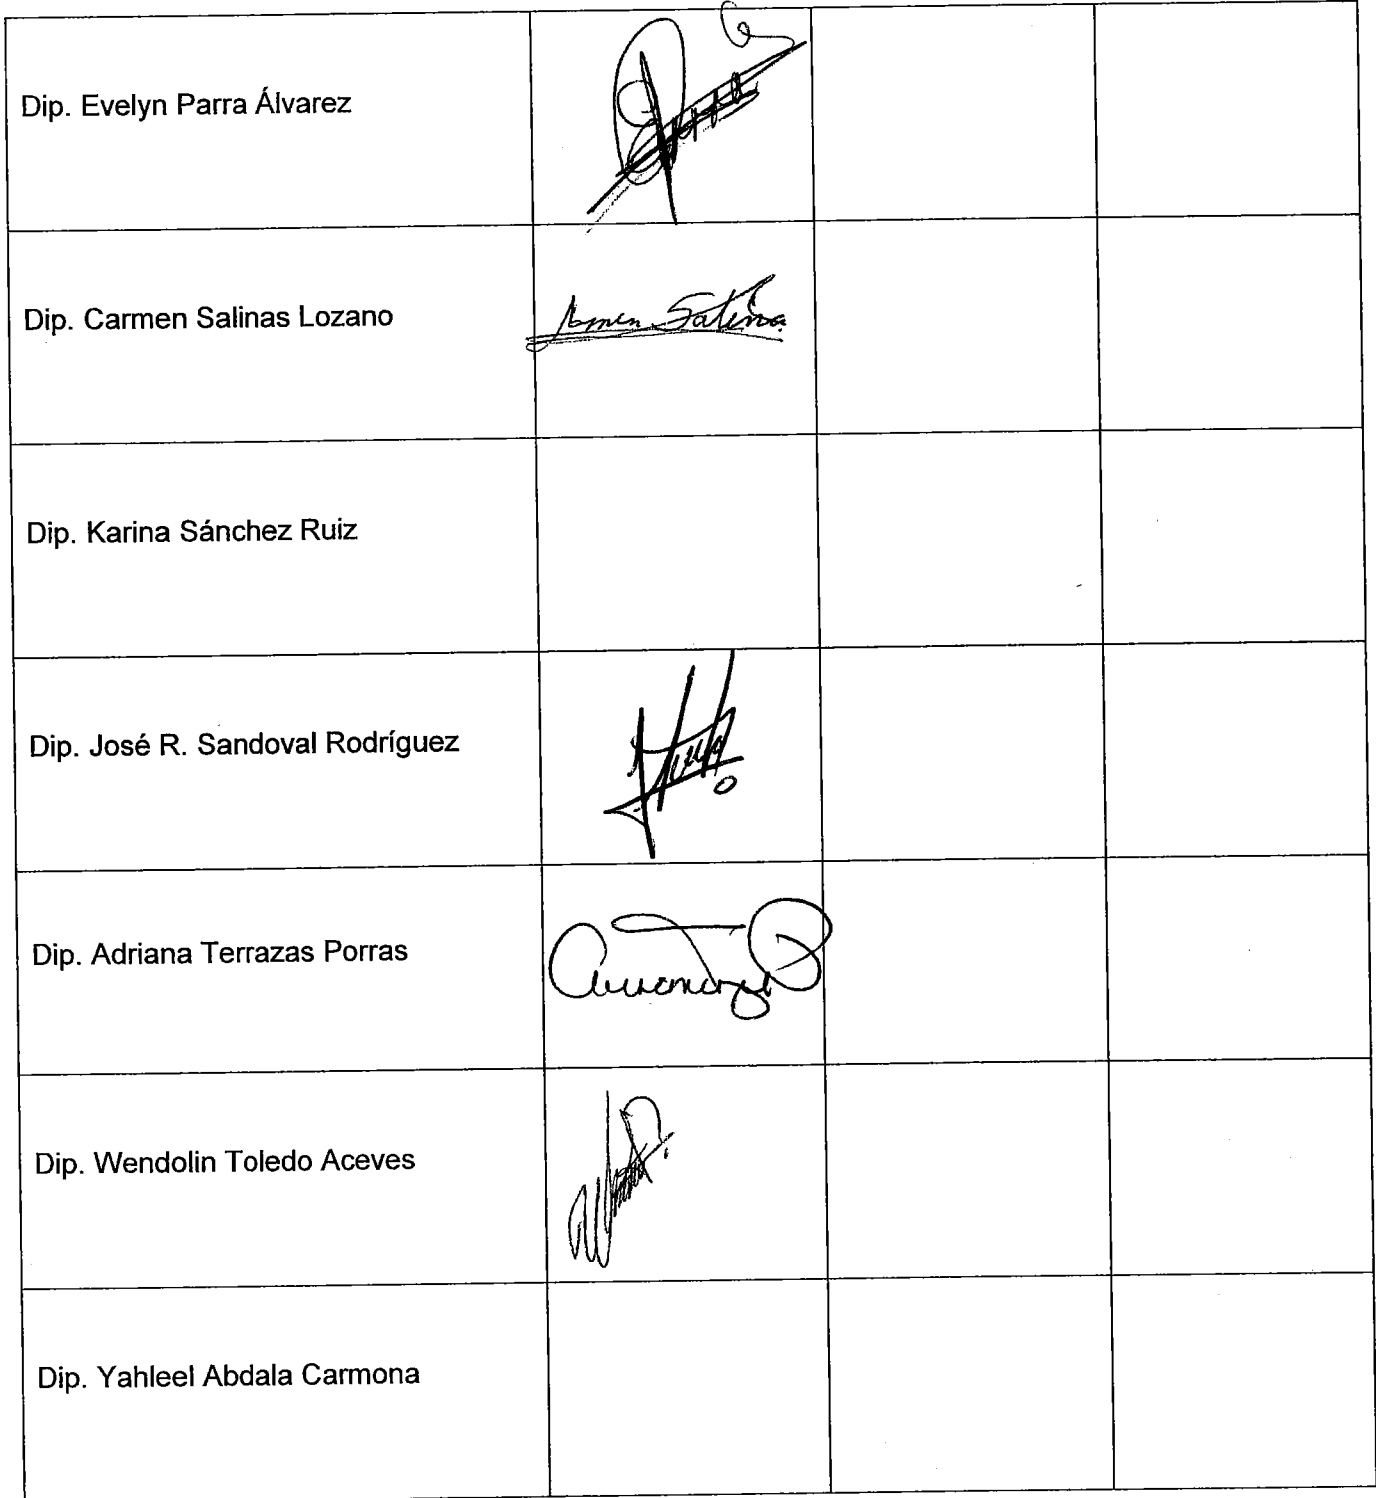 Dip. Evelyn Parra Álvarez
Dip. Carmen Salinas Lozano
Dip. Karina Sánchez Ruiz
Dip. José R. Sandoval Rodríguez
Dip. Adriana Terrazas Porras
Dip. Wendolin Toledo Aceves
Dip. Yahleel Abdala Carmona